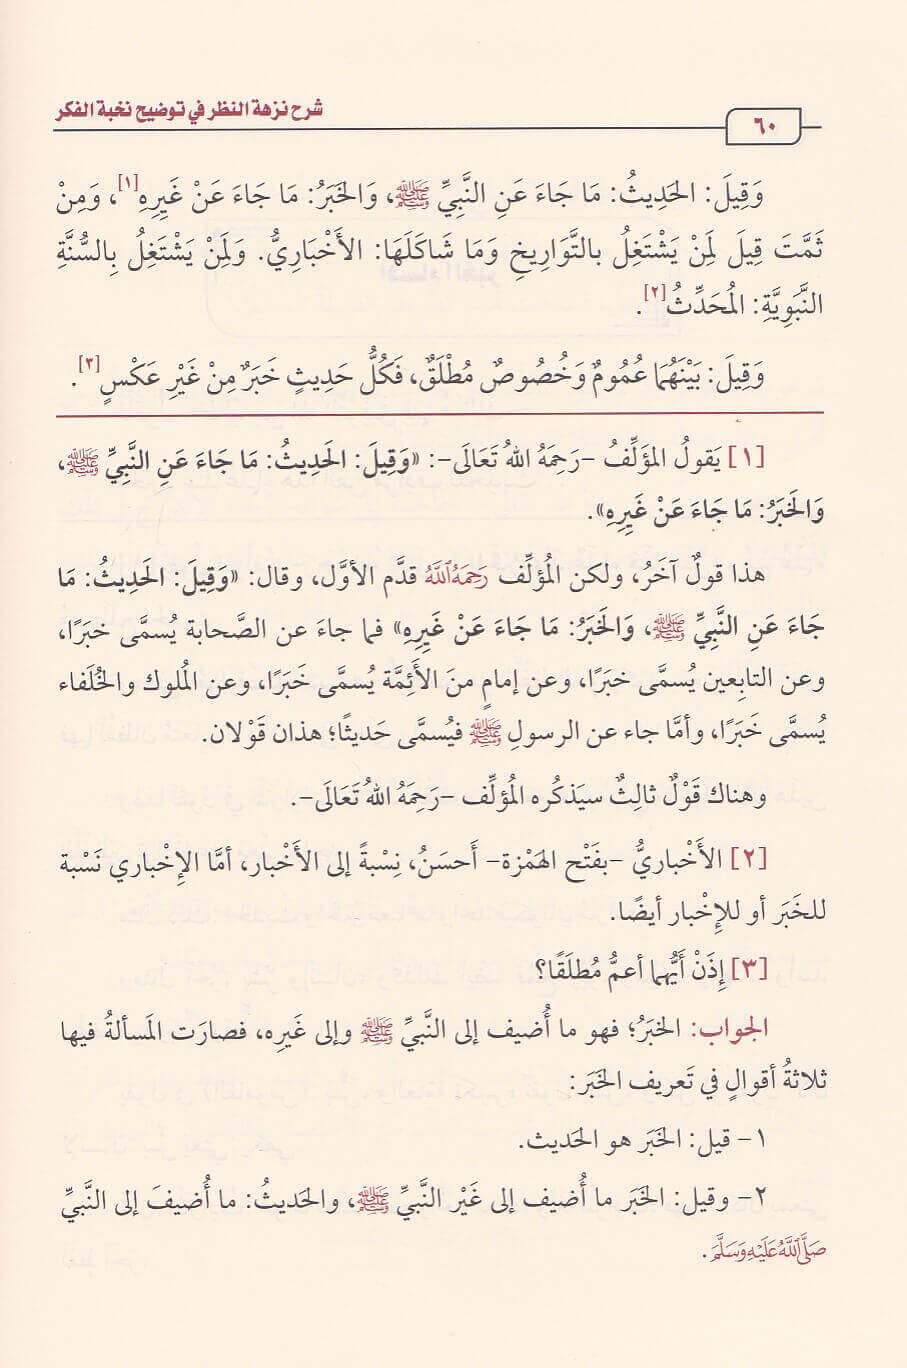 شرح نزهة النظر في توضيح نخبة الفكر
٦٠
وَقِيلَ: الحَدِيثُ: مَا جَاءَ عَنِ النَّبِيِّ ﷺ، وَالخَبَرُ: مَا جَاءَ عَنْ غَيرِهِ[١]، وَمِنْ
ثَمَّتَ قِيلَ لِمَنْ يَشْتَغِلُ بالتَّوَارِيخِ وَمَا شَاكَلَهَا: الأَخْبَارِيُّ. وَلِمَنْ يَشْتَغِلُ بِالسُّنَّةِ
النَّبَوِيَّةِ: المُحَدِّثُ[٢].
وَقِيلَ: بَيْنَهُمَا عُمُومٌ وَخُصُوصٌ مُطْلَقٌ، فَكُلُّ حَدِيثٍ خَبَرٌ مِنْ غَيرِ عَكْسٍ[٣].
[١] يَقولُ المؤَلِّفُ -رَحِمَهُ اللهُ تَعَالَى-: «وَقِيلَ: الحَدِيثُ: مَا جَاءَ عَنِ النَّبِيِّ ﷺ،
وَالخَبَرُ: مَا جَاءَ عَنْ غَيرِهِ».
هذا قولٌ آخَرُ، ولكن المُؤلِّف رَحِمَهُ اللَّهُ قدَّم الأوَّل، وقال: «وَقِيلَ: الحَدِيثُ: مَا
جَاءَ عَنِ النَّبِيِّ ﷺ، وَالخَبَرُ: مَا جَاءَ عَنْ غَيرِهِ» فما جاءَ عن الصَّحابة يُسمَّى خبَرًا،
وعن التابِعين يُسمَّى خبَرًا، وعن إمامٍ منَ الأَئِمَّة يُسمَّى خبَرًا، وعن المُلوك والخُلَفاء
يُسمَّى خَبَرًا، وأمَّا جاء عن الرسولِ ﷺ فيُسمَّى حَديثًا؛ هذان قَوْلان.
وهناك قَوْلٌ ثالِثٌ سيَذكُره المُؤلِّف -رَحِمَهُ اللهُ تَعَالَى-.
[٢] الأَخْباريُّ -بفَتْح الهَمْزة- أَحسَنُ، نِسْبةً إلى الأَخْبار، أمَّا الإِخْباري نَسْبة
للخَبَر أو للإِخْبار أيضًا.
[٣] إِذَنْ أَيُّهما أعمُّ مُطلَقًا؟
الجواب: الخبَرُ؛ فهو ما أُضيف إلى النَّبيِّ ﷺ وإلى غَيره، فصارَت المَسألةُ فيها
ثلاثةُ أقوالٍ في تَعريف الخَبَر:
١- قيل: الخَبَر هو الحَديث.
٢- وقيل: الخَبَر ما أُضيف إلى غَيْر النَّبيِّ ﷺ، والحَديثُ: ما أُضيفَ إلى النَّبيِّ
صَلَّى اللَّهُ عَلَيْهِ وَسَلَّمَ.